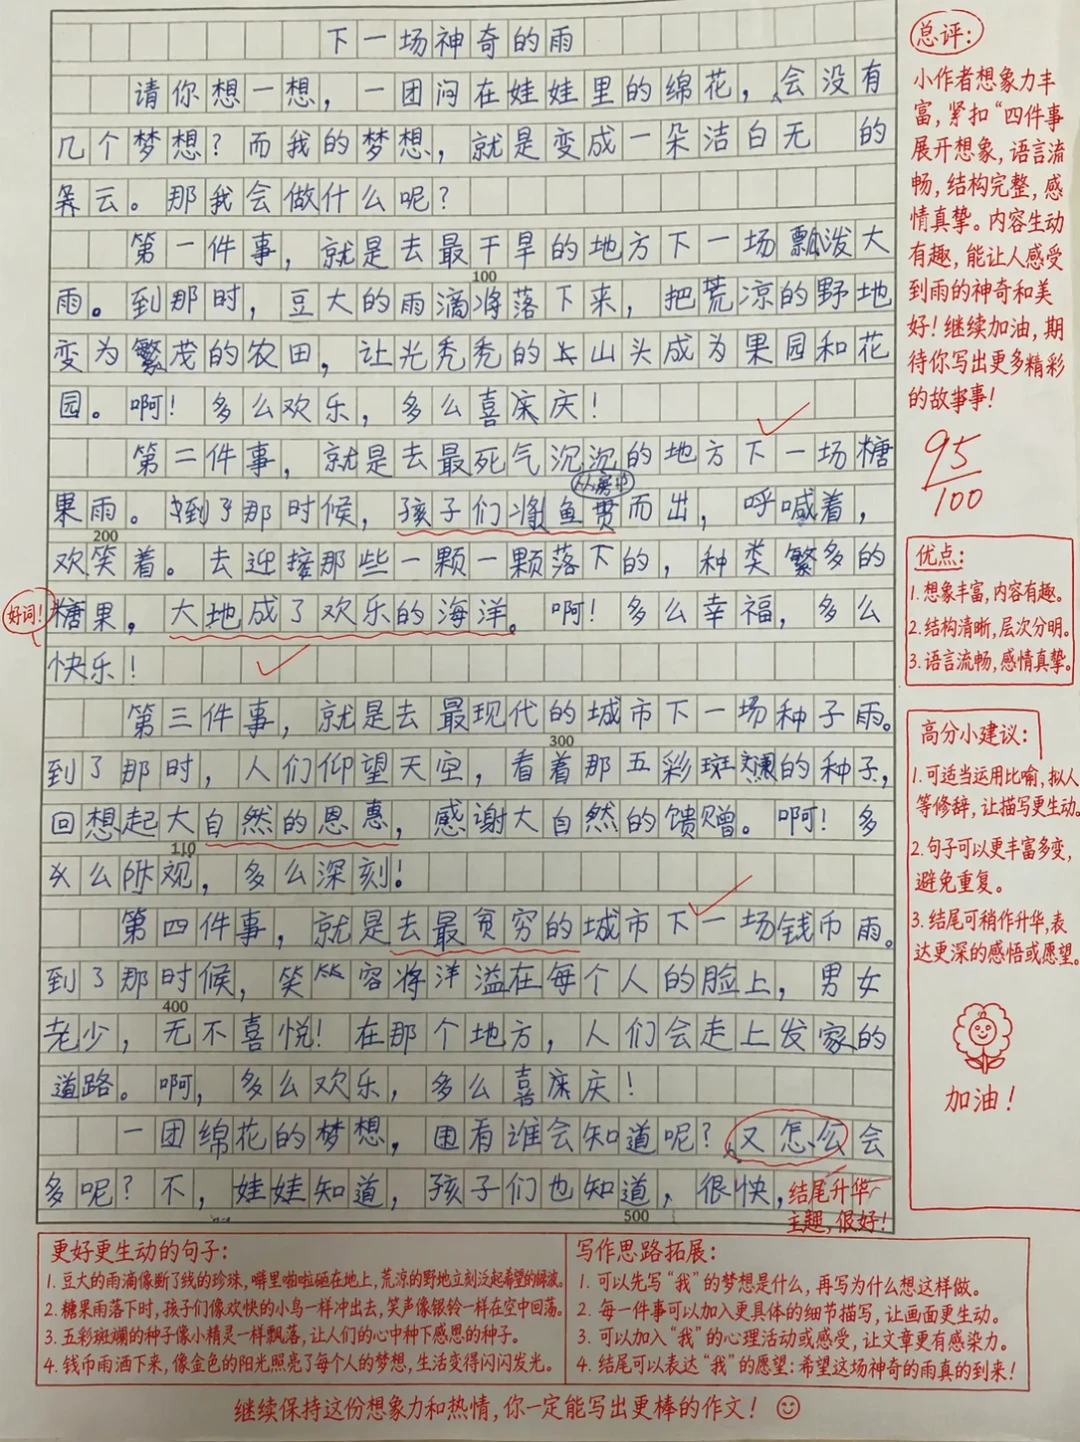 下一场神奇的雨
请你想一想，一团闷在娃娃里的绵花，会没有
几个梦想？而我的梦想，就是变成一朵洁白无 的
云。那我会做什么呢？
第一件事，就是去最干旱的地方下一场瓢泼大
100
雨。到那时，豆大的雨滴将落下来，把荒凉的野地
变为繁茂的农田，让光秃秃的山头成为果园和花
园。啊！多么欢乐，多么喜庆！
第二件事，就是去最死气沉沉的地方下一场糖
果雨。到了那时候，孩子们鱼贯而出，呼喊着，
200
欢笑着。去迎接那些一颗一颗落下的，种类繁多的
糖果，大地成了欢乐的海洋。啊！多么幸福，多么
快乐！
第三件事，就是去最现代的城市下一场种子雨。
300
到了那时，人们仰望天空，看着那五彩斑斓的种子，
回想起大自然的恩惠，感谢大自然的馈赠。啊！多
110
么观，多么深刻！
第四件事，就是去最贫穷的城市下一场钱币雨。
到了那时候，笑容将洋溢在每个人的脸上，男女
400
老少，无不喜悦！在那个地方，人们会走上发家的
道路。啊，多么欢乐，多么喜庆！
一团绵花的梦想，谁会知道呢？又怎么会
多呢？不，娃娃知道，孩子们也知道，很快，
500
好词！
结尾升华
主题，很好！
总评：
小作者想象力丰
富，紧扣“四件事
展开想象，语言流
畅，结构完整，感
情真挚。内容生动
有趣，能让人感受
到雨的神奇和美
好！继续加油，期
待你写出更多精彩
的故事事！
95
100
优点：
1. 想象丰富，内容有趣。
2. 结构清晰，层次分明。
3. 语言流畅，感情真挚。
高分小建议：
1. 可适当运用比喻，拟人
等修辞，让描写更生动。
2. 句子可以更丰富多变，
避免重复。
3. 结尾可稍作升华，表
达更深的感悟或愿望。
加油！
更好更生动的句子：
1. 豆大的雨滴像断了线的珍珠，噼里啪啦砸在地上，荒凉的野地立刻泛起希望的。
2. 糖果雨落下时，孩子们像欢快的小鸟一样冲出去，笑声像银铃一样在空中回荡。
3. 五彩斑斓的种子像小精灵一样飘落，让人们的心中种下感恩的种子。
4. 钱币雨洒下来，像金色的阳光照亮了每个人的梦想，生活变得闪闪发光。
写作思路拓展：
1. 可以先写“我”的梦想是什么，再写为什么想这样做。
2. 每一件事可以加入更具体的细节描写，让画面更生动。
3. 可以加入“我”的心理活动或感受，让文章更有感染力。
4. 结尾可以表达“我”的愿望：希望这场神奇的雨真的到来！
继续保持这份想象力和热情，你一定能写出更棒的作文！